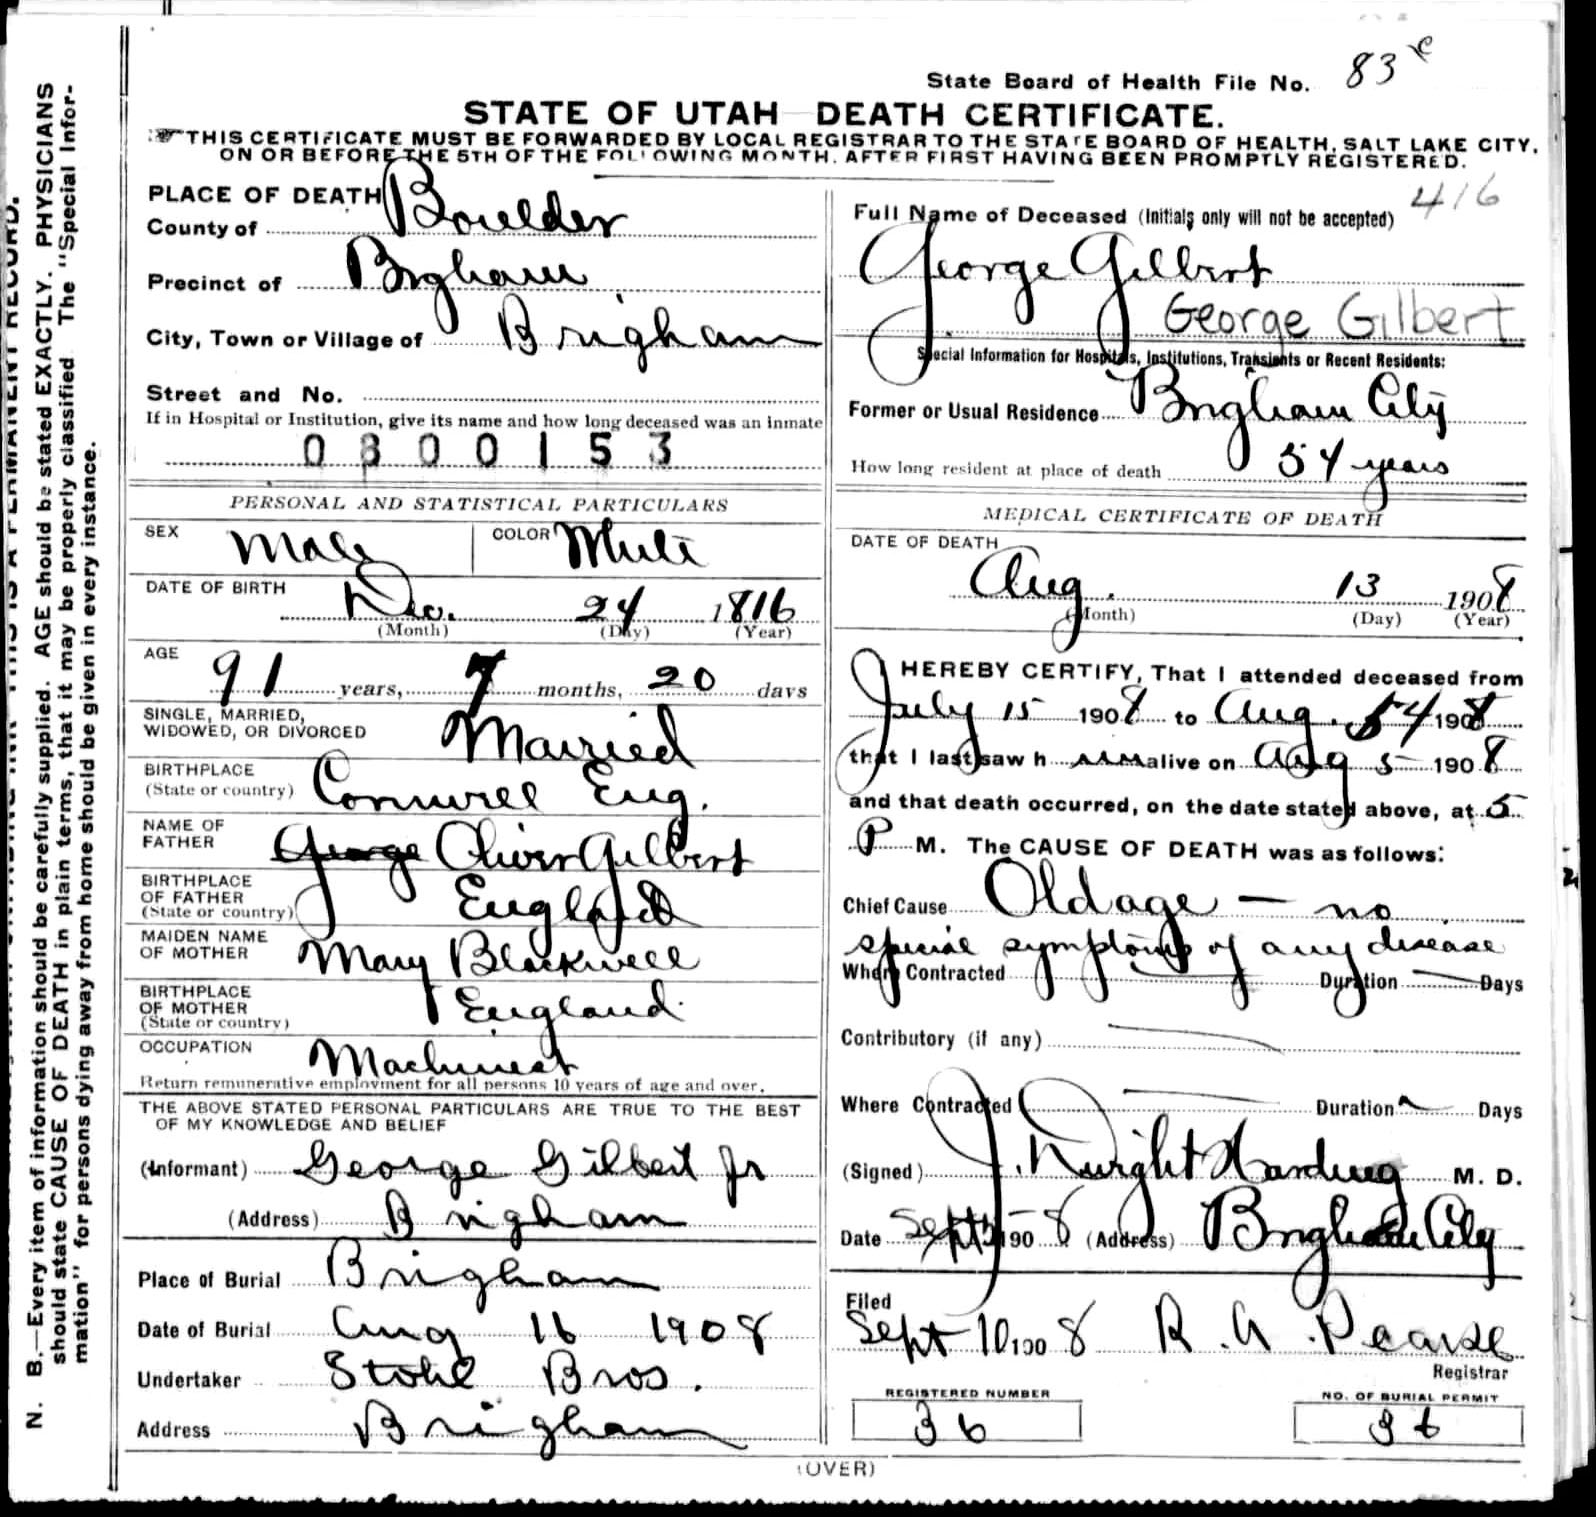 State Board of Health File No. 83
STATE OF UTAH DEATH CERTIFICATE.
THIS CERTIFICATE MUST BE FORWARDED BY LOCAL REGISTRAR TO THE STATE BOARD OF HEALTH, SALT LAKE CITY,
ON OR BEFORE THE 5TH OF THE FOLLOWING MONTH, AFTER FIRST HAVING BEEN PROMPTLY REGISTERED.
PLACE OF DEATH
County of Boulder
Precinct of Brigham
City, Town or Village of Brigham
Street and No.
If in Hospital or Institution, give its name and how long deceased was an inmate
0800153
PERSONAL AND STATISTICAL PARTICULARS
SEX Male COLOR White
DATE OF BIRTH
Dec. 24 1816
(Month) (Day) (Year)
AGE
91 years, 7 months, 20 days
SINGLE, MARRIED,
WIDOWED, OR DIVORCED Married
BIRTHPLACE
(State or country) Cornwell Eng.
NAME OF
FATHER George Oliver Gilbert
BIRTHPLACE
OF FATHER
(State or country) England
MAIDEN NAME
OF MOTHER Mary Blackwell
BIRTHPLACE
OF MOTHER
(State or country) England
OCCUPATION Machinest
Return remunerative employment for all persons 10 years of age and over.
THE ABOVE STATED PERSONAL PARTICULARS ARE TRUE TO THE BEST
OF MY KNOWLEDGE AND BELIEF
(Informant) George Gilbert Jr
(Address) Brigham
Place of Burial Brigham
Date of Burial Aug 16 1908
Undertaker Stohl Bros.
Address Brigham
416
Full Name of Deceased (Initials only will not be accepted)
George Gilbert
George Gilbert
Special Information for Hospitals, Institutions, Transients or Recent Residents:
Former or Usual Residence Brigham City
How long resident at place of death 54 years
MEDICAL CERTIFICATE OF DEATH
DATE OF DEATH
Aug. 13 1908
(Month) (Day) (Year)
I HEREBY CERTIFY, That I attended deceased from
July 15 1908 to Aug. 1908
that I last saw h im alive on Aug 5 1908
and that death occurred, on the date stated above, at 5
P M. The CAUSE OF DEATH was as follows:
Chief Cause Old age — no
special symptoms of any disease
Where Contracted Duration Days
Contributory (if any)
Where Contracted Duration Days
(Signed) J. Dwight Harding M. D.
Date Sept 1908 (Address) Brigham City
Filed
Sept 10, 1908 R. A. Pearse
Registrar
REGISTERED NUMBER NO. OF BURIAL PERMIT
36 36
(OVER)
N. B.—Every item of information should be carefully supplied. AGE should be stated EXACTLY. PHYSICIANS
should state CAUSE OF DEATH in plain terms, that it may be properly classified. The "Special Infor-
mation" for persons dying away from home should be given in every instance.